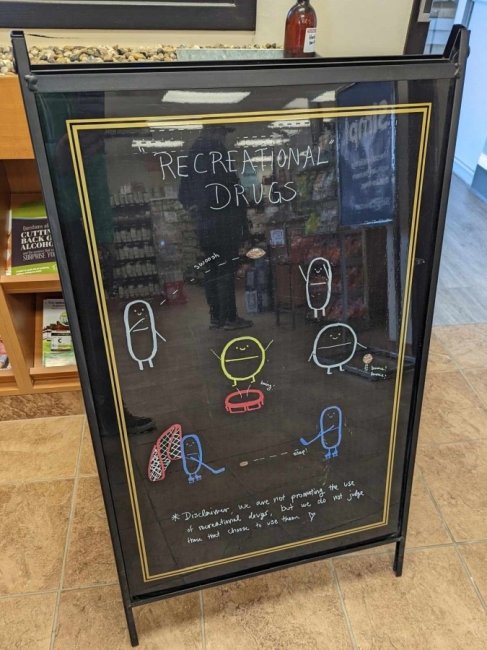 "RECREATIONAL"
DRUGS
swoosh
*Disclaimer, we are not promoting the use
of recreational drugs, but we do not judge
those that choose to use them ♡
CUTTING
BACK ON
ALCOHOL